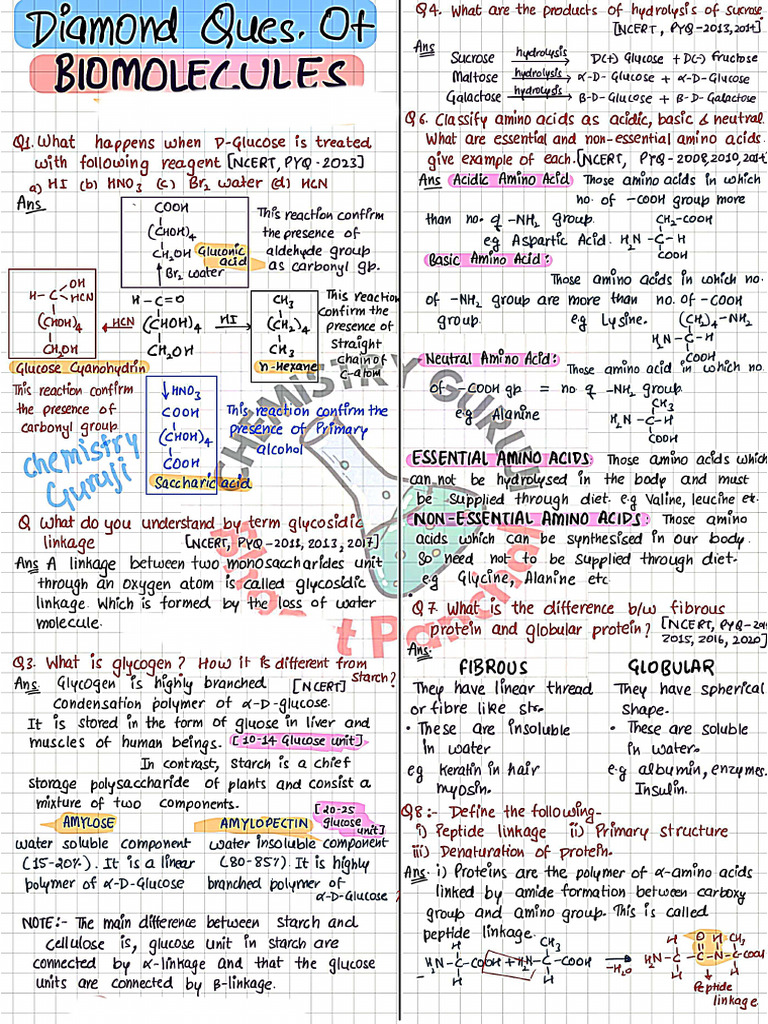 Diamond Ques. Of
BIOMOLECULES
Q1. What happens when D-Glucose is treated
with following reagent [NCERT, PYQ-2023]
a) HI (b) HNO3 (c) Br2 water (d) HCN
Ans
COOH
(CHOH)4
CH2OH
Gluconic
acid
Br2 water
This reaction confirm
the presence of
aldehyde group
as carbonyl gp.
H-C
OH
HCN
(CHOH)4
CH2OH
Glucose Cyanohydrin
HCN
H-C=O
(CHOH)4
CH2OH
HI
CH3
(CH2)4
CH3
n-Hexane
This reaction
confirm the
presence of
straight
chain of
c-atom
This reaction confirm
the presence of
carbonyl group
HNO3
COOH
(CHOH)4
COOH
Saccharic acid
This reaction confirm the
presence of Primary
alcohol
chemistry
Guruji
Q What do you understand by term glycosidic
linkage [NCERT, PYQ-2011, 2013, 2017]
Ans A linkage between two monosaccharides unit
through an oxygen atom is called glycosidic
linkage. Which is formed by the loss of water
molecule.
Q3. What is glycogen? How it is different from
starch?
Ans. Glycogen is highly branched [NCERT]
condensation polymer of α-D-glucose.
It is stored in the form of gluose in liver and
muscles of human beings. [10-14 Glucose unit]
In contrast, starch is a chief
storage polysaccharide of plants and consist a
mixture of two components.
AMYLOSE
water soluble component
(15-20%). It is a linear
polymer of α-D-Glucose
AMYLOPECTIN
[20-25
glucose
unit]
water insoluble component
(80-85%). It is highly
branched polymer of
α-D-Glucose
NOTE:- The main difference between starch and
cellulose is, glucose unit in starch are
connected by α-linkage and that the glucose
units are connected by β-linkage.
CHEMISTRY GURUJI
Q4. What are the products of hydrolysis of sucrose
[NCERT, PYQ-2013,2014]
Ans
Sucrose hydrolysis D(+) Glucose + D(-) fructose
Maltose hydrolysis α-D-Glucose + α-D-Glucose
Galactose hydrolysis β-D-Glucose + β-D-Galactose
Q6. Classify amino acids as acidic, basic & neutral.
What are essential and non-essential amino acids.
give example of each. [NCERT, PYQ-2008,2010,2014]
Ans Acidic Amino Acid Those amino acids in which
no. of -COOH group more
than no. q -NH2 group.
eg Aspartic Acid.
CH2-COOH
H2N-C-H
COOH
Basic Amino Acid:
Those amino acids in which no.
of -NH2 group are more than no. of -COOH
group. e.g Lysine.
(CH2)4-NH2
H2N-C-H
COOH
Neutral Amino Acid: Those amino acid in which no
of -COOH gp = no q -NH2 group
e.g Alanine
CH3
H2N-C-H
COOH
ESSENTIAL AMINO ACIDS: Those amino acids which
can not be hydrolysed in the body and must
be supplied through diet. e.g Valine, leucine et.
NON-ESSENTIAL AMINO ACIDS: Those amino
acids which can be synthesised in our body.
So need not to be supplied through diet.
eg Glycine, Alanine etc
Q7. What is the difference b/w fibrous
protein and globular protein? [NCERT, PYQ-
2015, 2016, 2020]
Ans.
FIBROUS
They have linear thread
or fibre like str.
• These are insoluble
in water
eg keratin in hair
myosin.
GLOBULAR
They have spherical
shape.
• These are soluble
in water.
e.g albumin, enzymes.
Insulin.
Q8:- Define the following-
i) Peptide linkage ii) Primary structure
iii) Denaturation of protein.
Ans. i) Proteins are the polymer of α-amino acids
linked by amide formation between carboxy
group and amino group. This is called
peptide linkage.
H
H2N-C-COOH + H2N-C-COOH
CH3
H
H
-H2O
H O H CH3
H2N-C-C-N-C-COOH
H H
Peptide
linkage